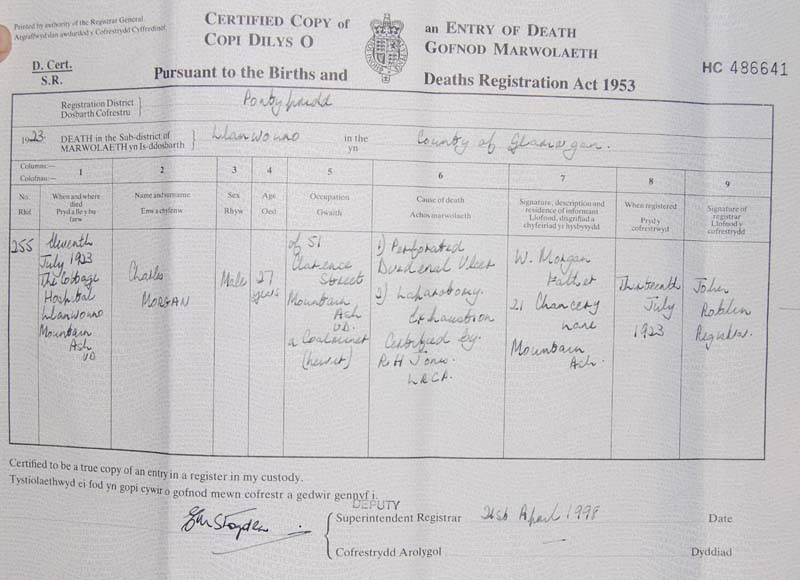 Printed by authority of the Registrar General.
Argraffwyd dan awdurdod y Cofrestrydd Cyffredinol.
CERTIFIED COPY of an ENTRY OF DEATH
COPI DILYS O GOFNOD MARWOLAETH
D. Cert.
S.R.
Pursuant to the Births and Deaths Registration Act 1953
HC 486641
Registration District Pontypridd
Dosbarth Cofrestru
1923. DEATH in the Sub-district of Llanwonno in the County of Glamorgan.
MARWOLAETH yn Is-ddosbarth yn
Columns:— 1 2 3 4 5 6 7 8 9
Colofnau:—
No. When and where died Name and surname Sex Age Occupation Cause of death Signature, description and residence of informant When registered Signature of registrar
Rhif Pryd a lle y bu farw Enw a chyfenw Rhyw Oed Gwaith Achos marwolaeth Llofnod, disgrifiad a chyfeiriad yr hysbysydd Pryd y cofrestrwyd Llofnod y cofrestrydd
255
Eleventh
July 1923
The Cottage
Hospital
Llanwonno
Mountain
Ash
UD
Charles
MORGAN
Male
27
years
of 51
Clarence
Street
Mountain
Ash
UD.
a Coalminer
(hewer)
1) Perforated
Duodenal Ulcer
2) Laparotomy.
Exhaustion
Certified by.
R H Jones.
LRCP.
W. Morgan
Father
21 Chancery
Lane
Mountain
Ash.
Thirteenth
July
1923
John
Roblin
Registrar.
Certified to be a true copy of an entry in a register in my custody.
Tystiolaethwyd ei fod yn gopi cywir o gofnod mewn cofrestr a gedwir gennyf i.
DEPUTY
Superintendent Registrar 21st April 1998 Date
Cofrestrydd Arolygol Dyddiad